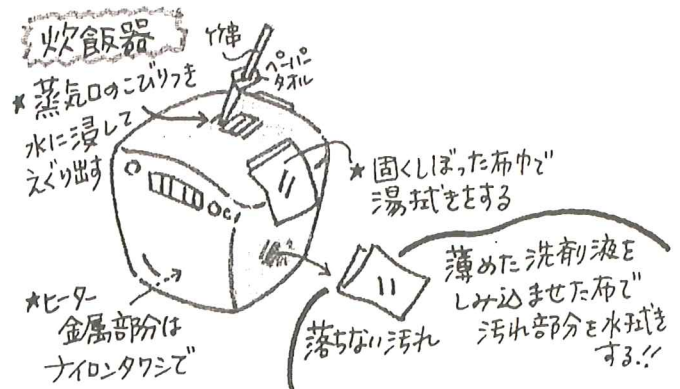 炊飯器
竹串
ペーパー
タオル
★蒸気口のこびりつき
水に浸して
えぐり出す
★固くしぼった布巾で
湯拭きをする
★ヒーター
金属部分は
ナイロンタワシで
落ちない汚れ
薄めた洗剤液を
しみ込ませた布で
汚れ部分を水拭き
する!!